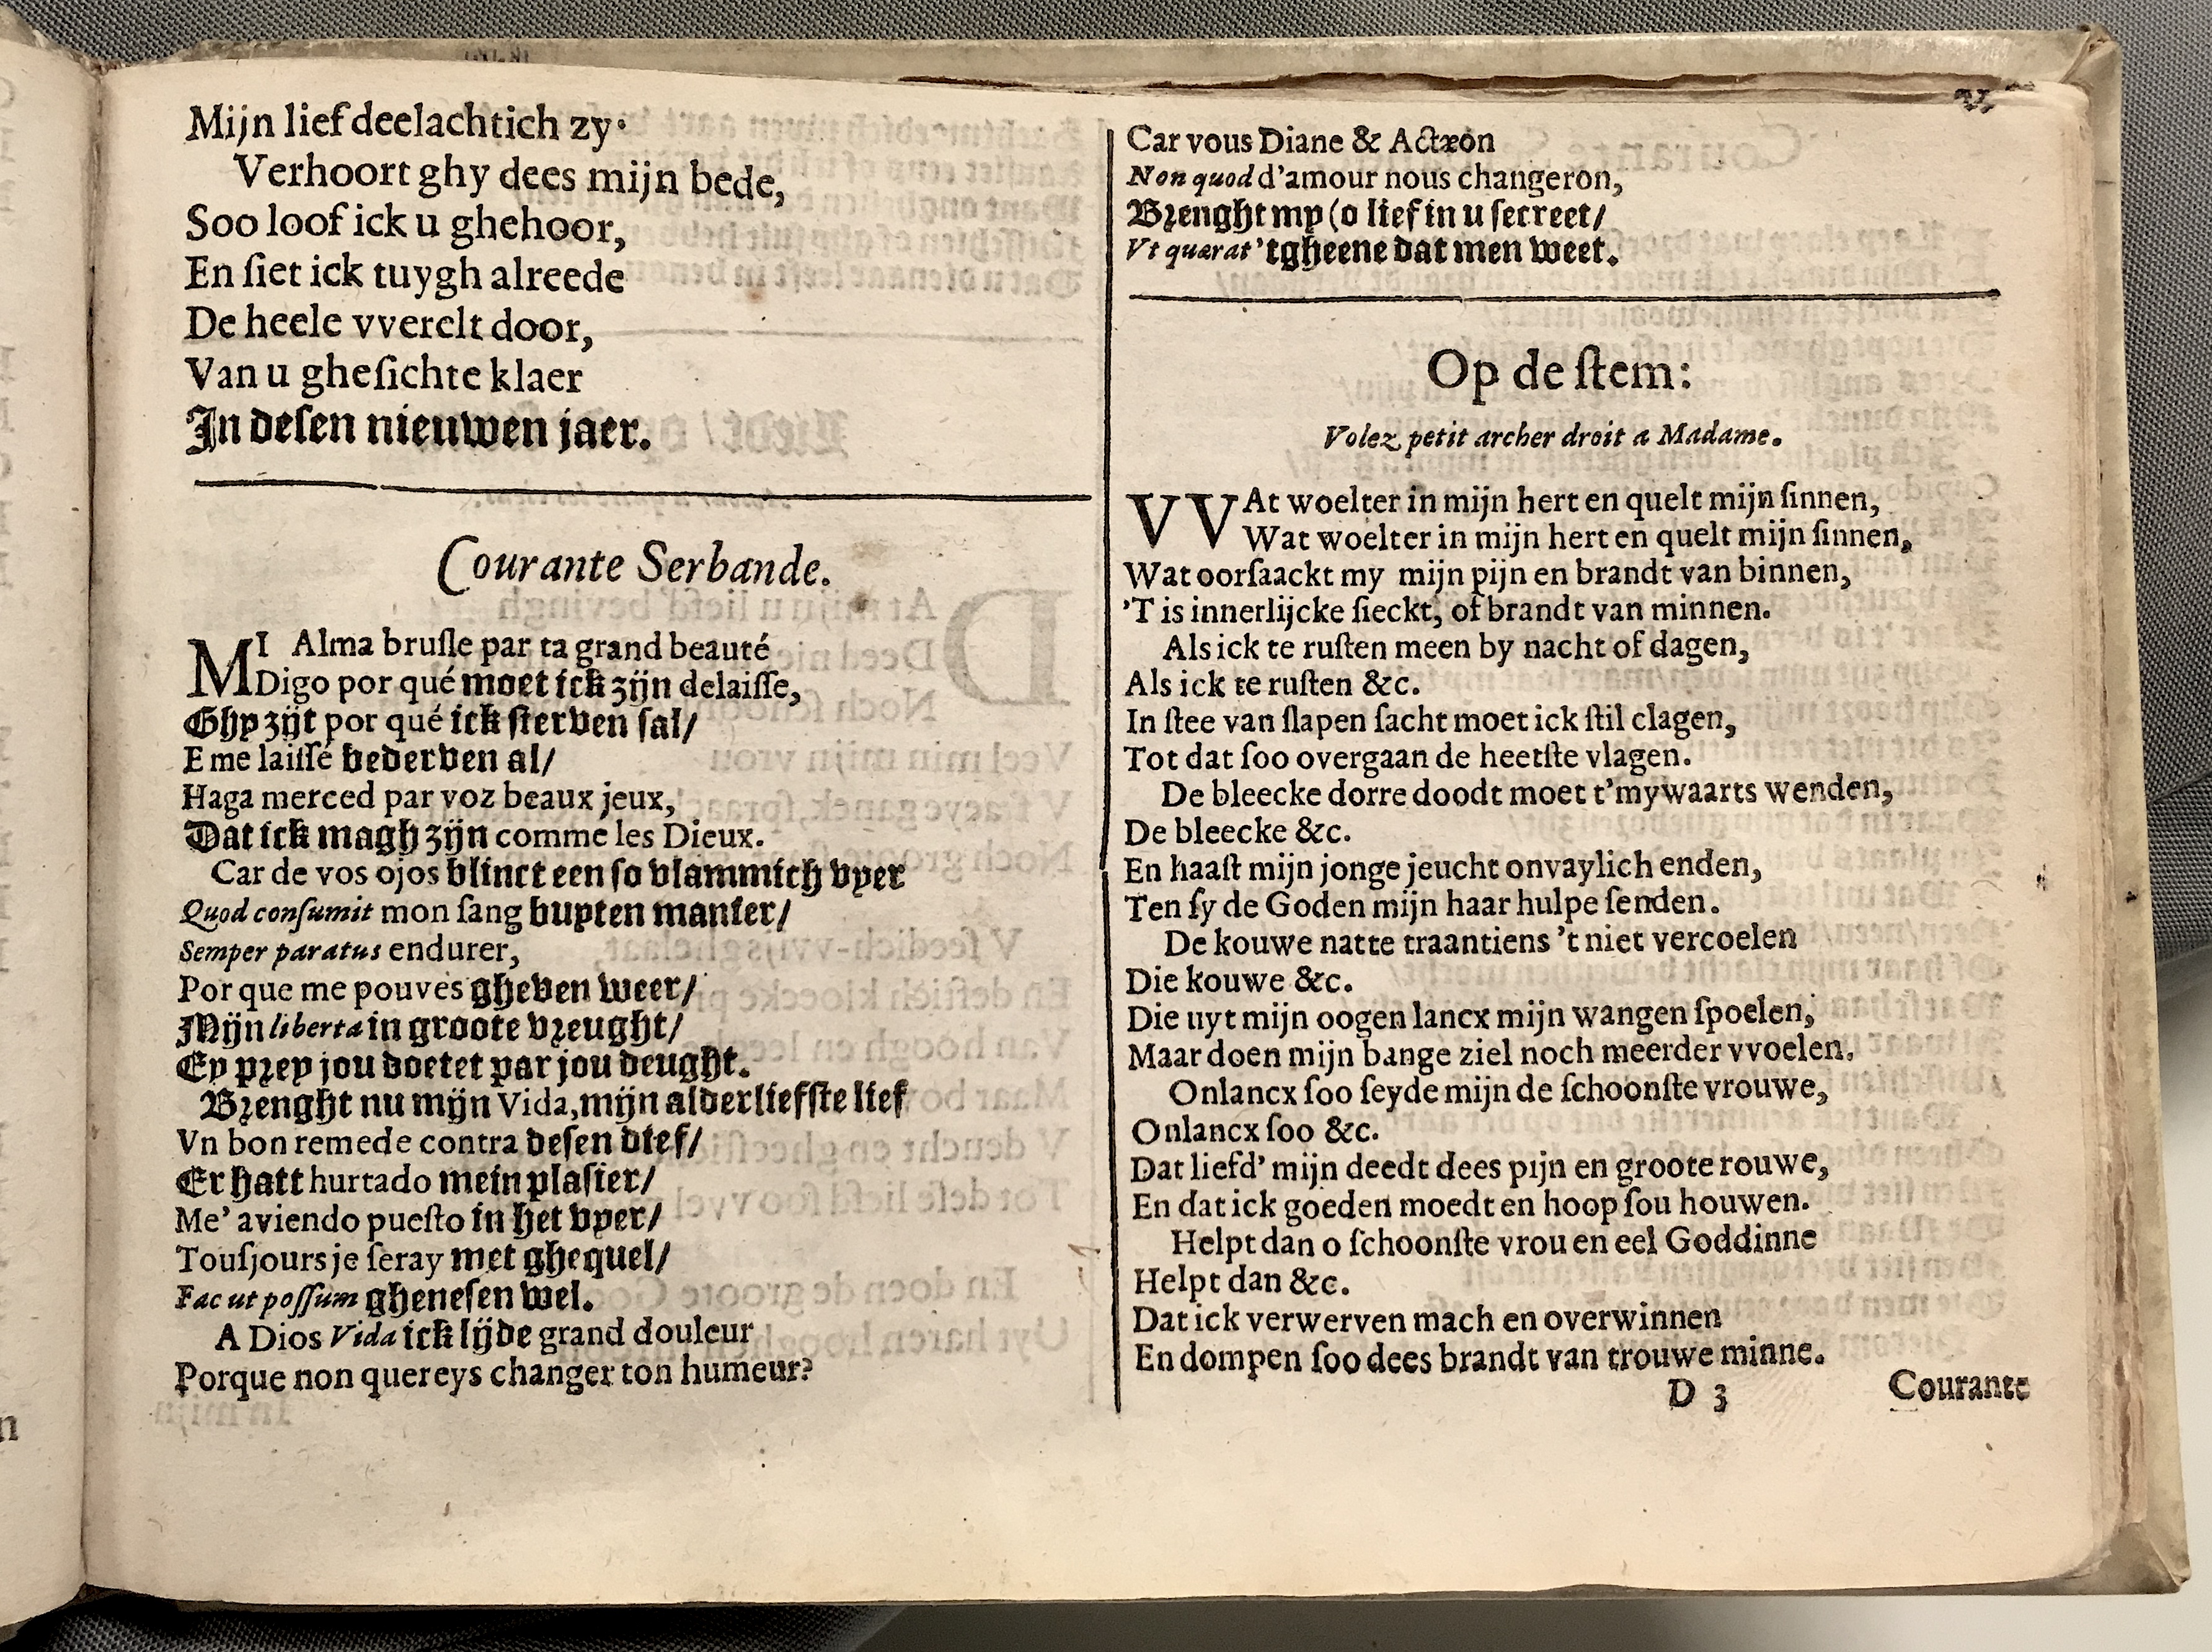 Mijn lief deelachtich zy·
Verhoort ghy dees mijn bede,
Soo loof ick u ghehoor,
En ſiet ick tuygh alreede
De heele vverelt door,
Van u gheſichte klaer
In deſen nieuwen jaer.
Courante Serbande.
MI Alma bruſle par ta grand beauté
Digo por qué moet ick zijn delaiſſe,
Ghy zijt por qué ick ſterven ſal/
E me laiſſé bederven al/
Haga merced par voz beaux jeux,
Dat ick magh zijn comme les Dieux.
Car de vos ojos blinct een ſo vlammich vyer
Quod conſumit mon ſang buyten manier/
Semper paratus endurer,
Por que me pouvés gheven weer/
Mijn liberta in groote vreught/
Ey prey jou doetet par jou deught.
Brenght nu mijn Vida, mijn alderliefſte lief
Vn bon remede contra deſen dief/
Er hatt hurtado mein plaſier/
Me' aviendo pueſto in het vyer/
Touſjours je ſeray met ghequel/
Fac ut poſſum gheneſen wel.
A Dios Vida ick lijde grand douleur
Porque non quereys changer ton humeur?
Car vous Diane & Actæon
Non quod d'amour nous changeron,
Brenght my (o lief in u ſecreet/
Vt quærat 'tgheene dat men weet.
Op de ſtem:
Volez petit archer droit a Madame.
VVAt woelter in mijn hert en quelt mijn ſinnen,
Wat woelter in mijn hert en quelt mijn ſinnen,
Wat oorſaackt my mijn pijn en brandt van binnen,
'T is innerlijcke ſieckt, of brandt van minnen.
Als ick te ruſten meen by nacht of dagen,
Als ick te ruſten &c.
In ſtee van ſlapen ſacht moet ick ſtil clagen,
Tot dat ſoo overgaan de heetſte vlagen.
De bleecke dorre doodt moet t'mywaarts wenden,
De bleecke &c.
En haaſt mijn jonge jeucht onvaylich enden,
Ten ſy de Goden mijn haar hulpe ſenden.
De kouwe natte traantiens 't niet vercoelen
Die kouwe &c.
Die uyt mijn oogen lancx mijn wangen ſpoelen,
Maar doen mijn bange ziel noch meerder vvoelen.
Onlancx ſoo ſeyde mijn de ſchoonſte vrouwe,
Onlancx ſoo &c.
Dat liefd' mijn deedt dees pijn en groote rouwe,
En dat ick goeden moedt en hoop ſou houwen.
Helpt dan o ſchoonſte vrou en eel Goddinne
Helpt dan &c.
Dat ick verwerven mach en overwinnen
En dompen ſoo dees brandt van trouwe minne.
D 3 Courante